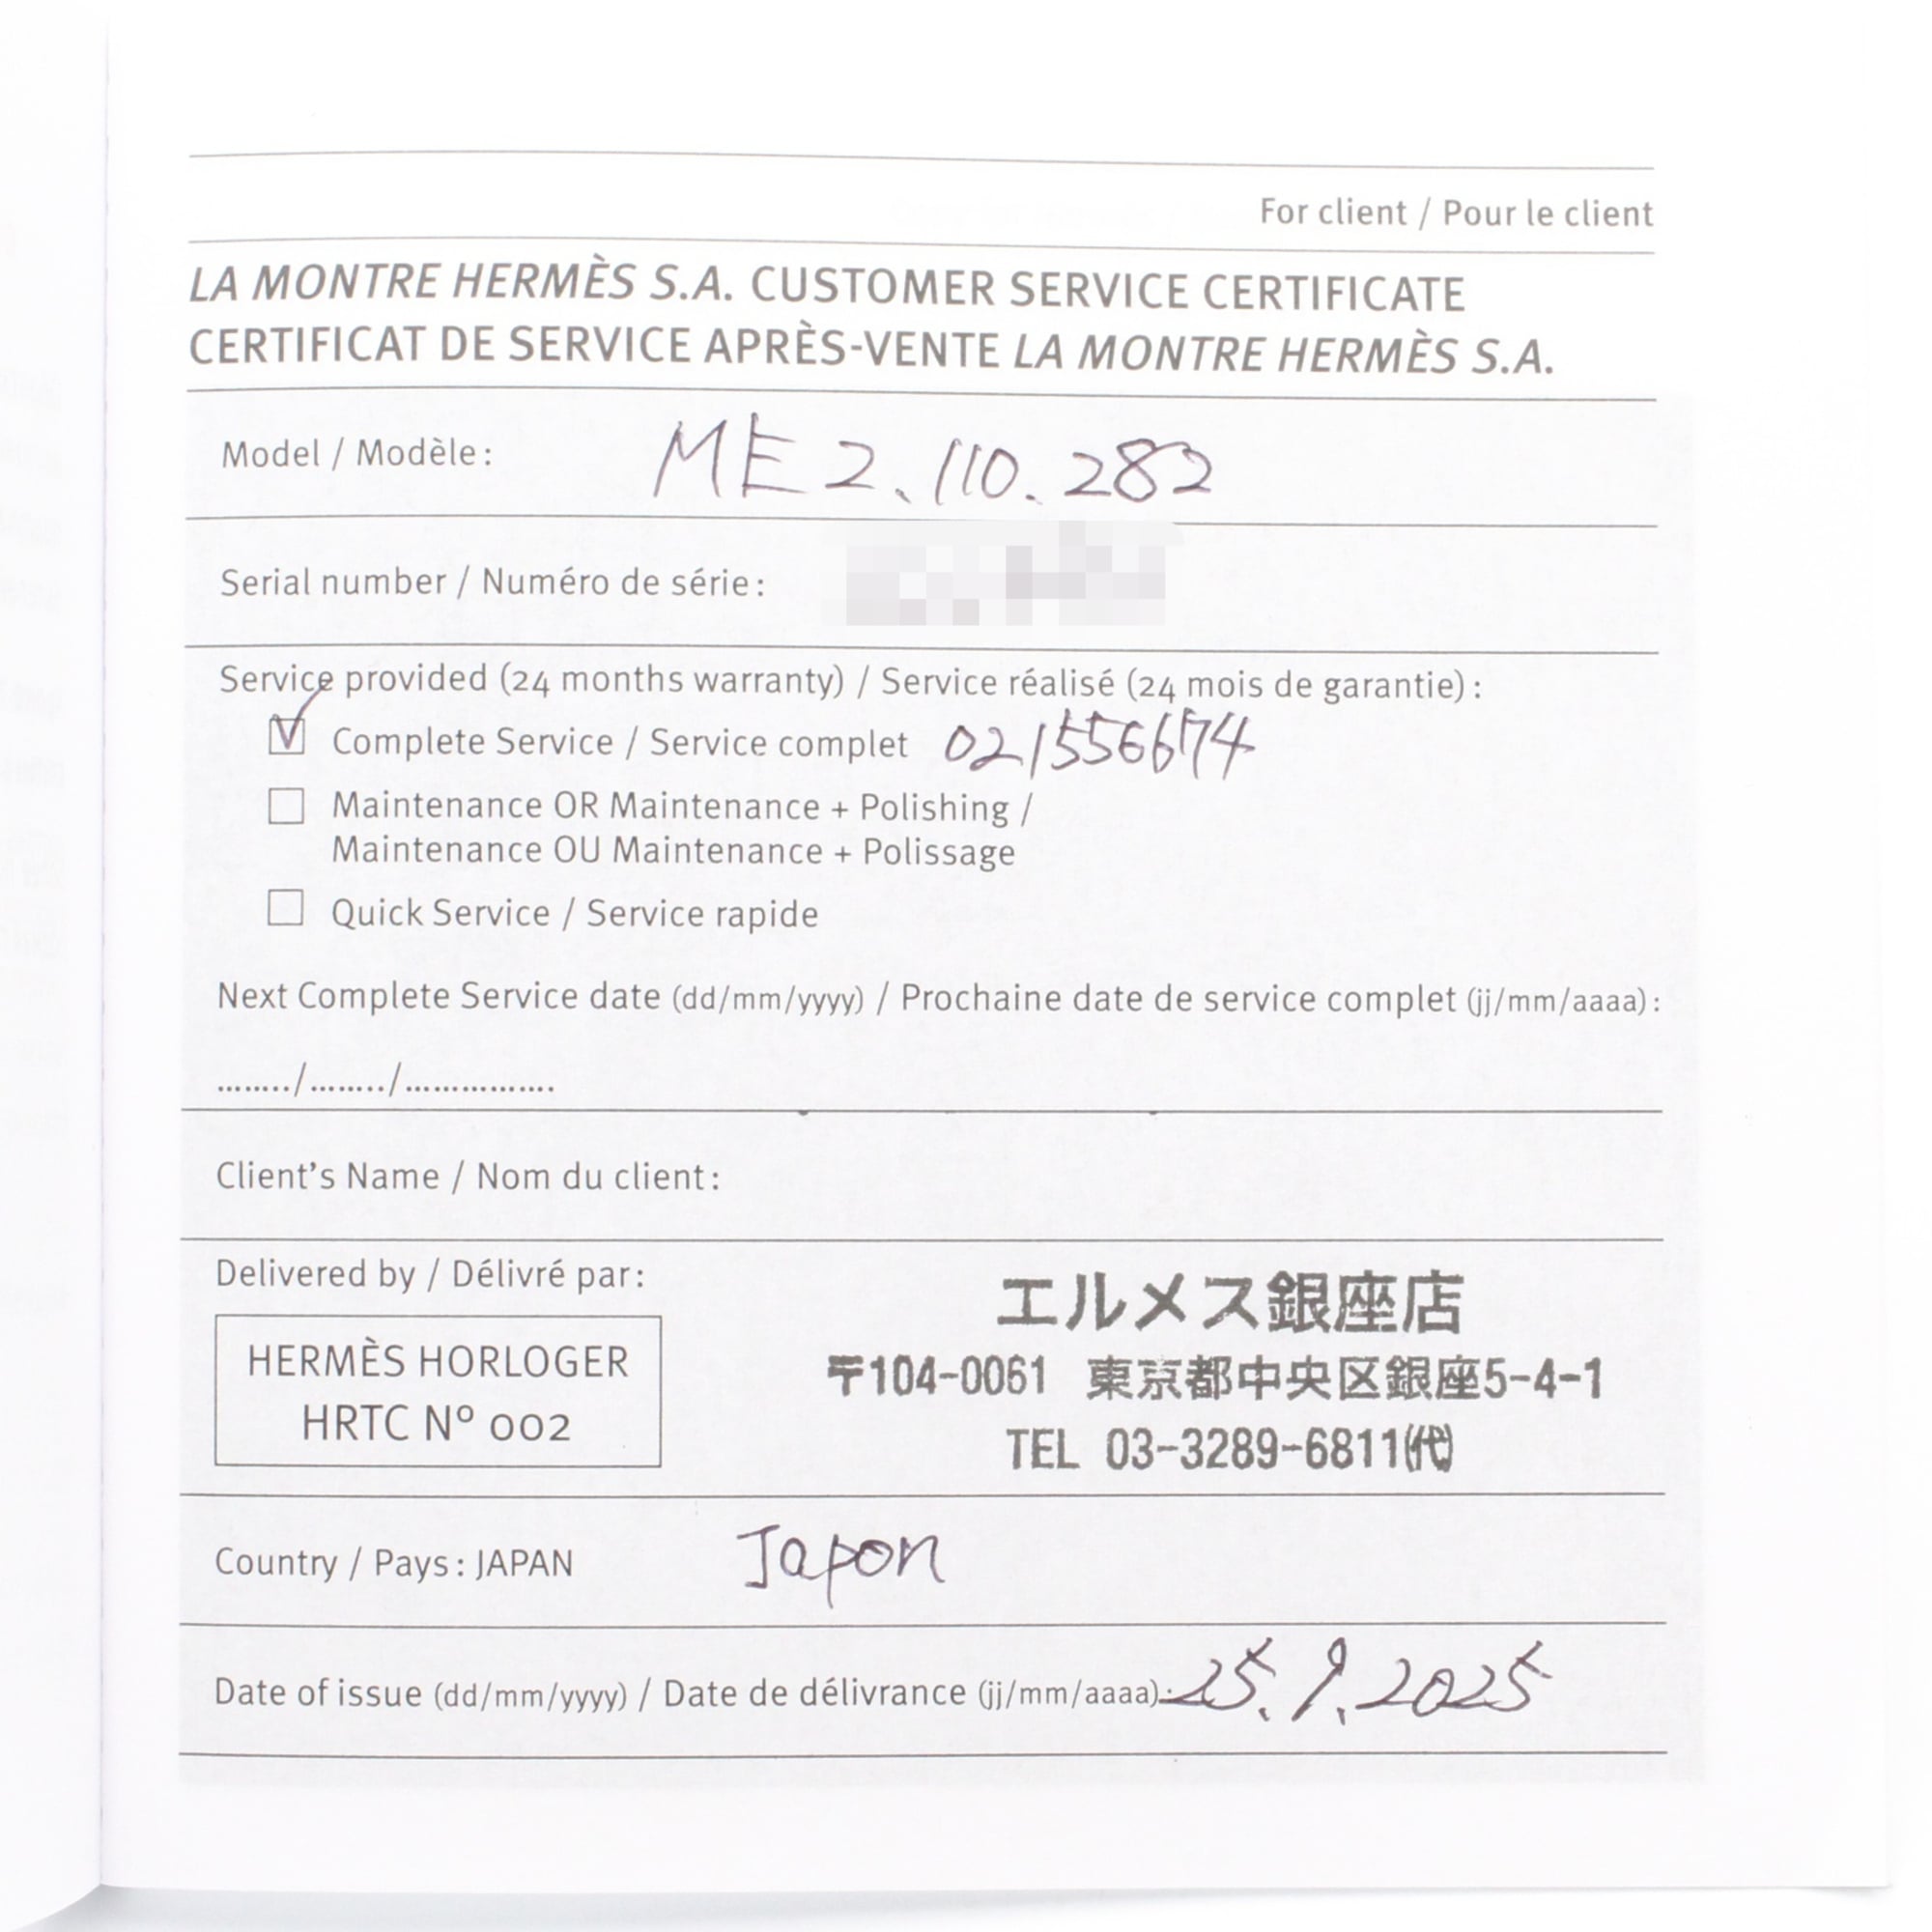 For client / Pour le client
LA MONTRE HERMÈS S.A. CUSTOMER SERVICE CERTIFICATE
CERTIFICAT DE SERVICE APRÈS-VENTE LA MONTRE HERMÈS S.A.
Model / Modèle : ME2.110.282
Serial number / Numéro de série :
Service provided (24 months warranty) / Service réalisé (24 mois de garantie) :
Complete Service / Service complet 021556674
Maintenance OR Maintenance + Polishing /
Maintenance OU Maintenance + Polissage
Quick Service / Service rapide
Next Complete Service date (dd/mm/yyyy) / Prochaine date de service complet (jj/mm/aaaa) :
......../......../................
Client's Name / Nom du client :
Delivered by / Délivré par :
HERMÈS HORLOGER
HRTC N° 002
エルメス銀座店
〒104-0061 東京都中央区銀座5-4-1
TEL 03-3289-6811㈹
Country / Pays : JAPAN Japon
Date of issue (dd/mm/yyyy) / Date de délivrance (jj/mm/aaaa) : 25.9.2025